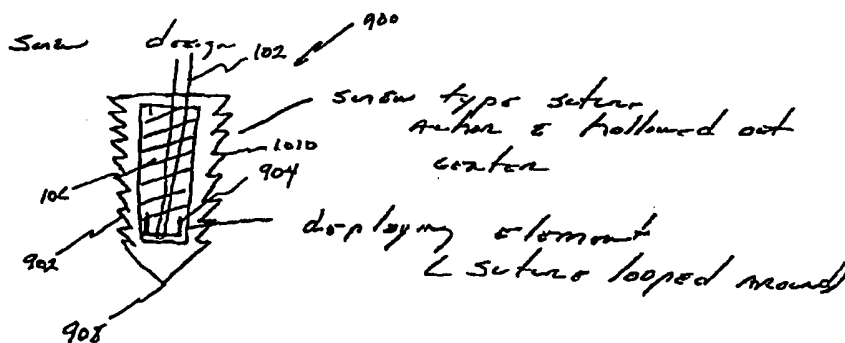 Screw design
900
102
screw type suture
Anchor c̄ hollowed out
center
1010
904
106
deploying element
c̄ suture looped around
902
908